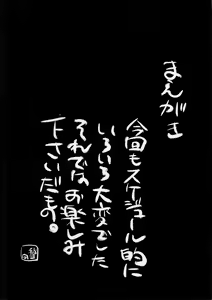 まえがき
今回もスケジュール的に
いろいろ大変でした
それでは、お楽しみ
下さいだます。